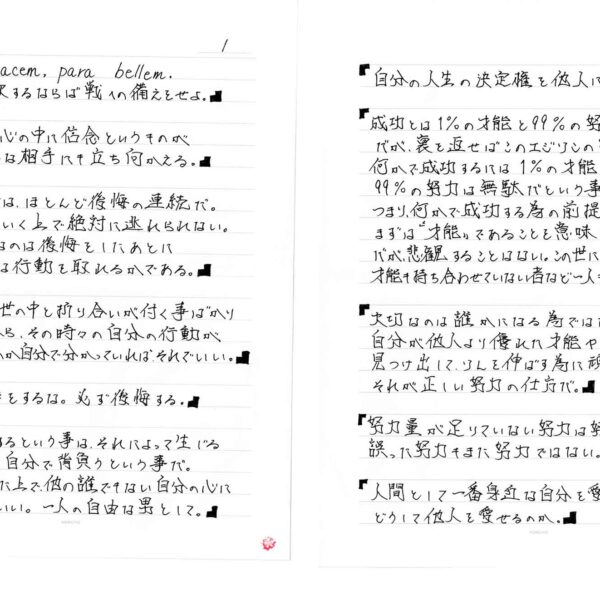 1
acem, para bellem.
するならば戦への備えをせよ。
心の中に信念というものが
な相手にも立ち向かえる。
は、ほとんど後悔の連続だ。
いく上で絶対に逃れられない。
なのは後悔をしたあとに
は行動を取れるかである。
世の中と折り合いが付く事ばかり
ら、その時々の自分の行動が
のか自分で分かっていれば、それでいい。
をするな。必ず後悔する。
するという事は、それによって生じる
自分で背負うという事だ。
た上で、他の誰でもない自分の心に
いい。一人の自由な男として。
「自分の人生の決定権を他人に
「成功とは1%の才能と99%の努
だが、裏を返せばこのエジソンの
何かで成功するには1%の才能
99%の努力は無駄だという事
つまり、何かで成功する為の前提
まずは〝才能〟であることを意味
だが、悲観することはない。この世に
才能を持ち合わせていない者など一人
「大切なのは誰かになる為では
自分が他人より優れた才能や
見つけ出して、それを伸ばす為に
それが正しい努力の仕方だ。」
「努力量が足りていない努力は
誤った努力もまた努力ではない。
「人間として一番身近な自分を愛
どうして他人を愛せるのか。」